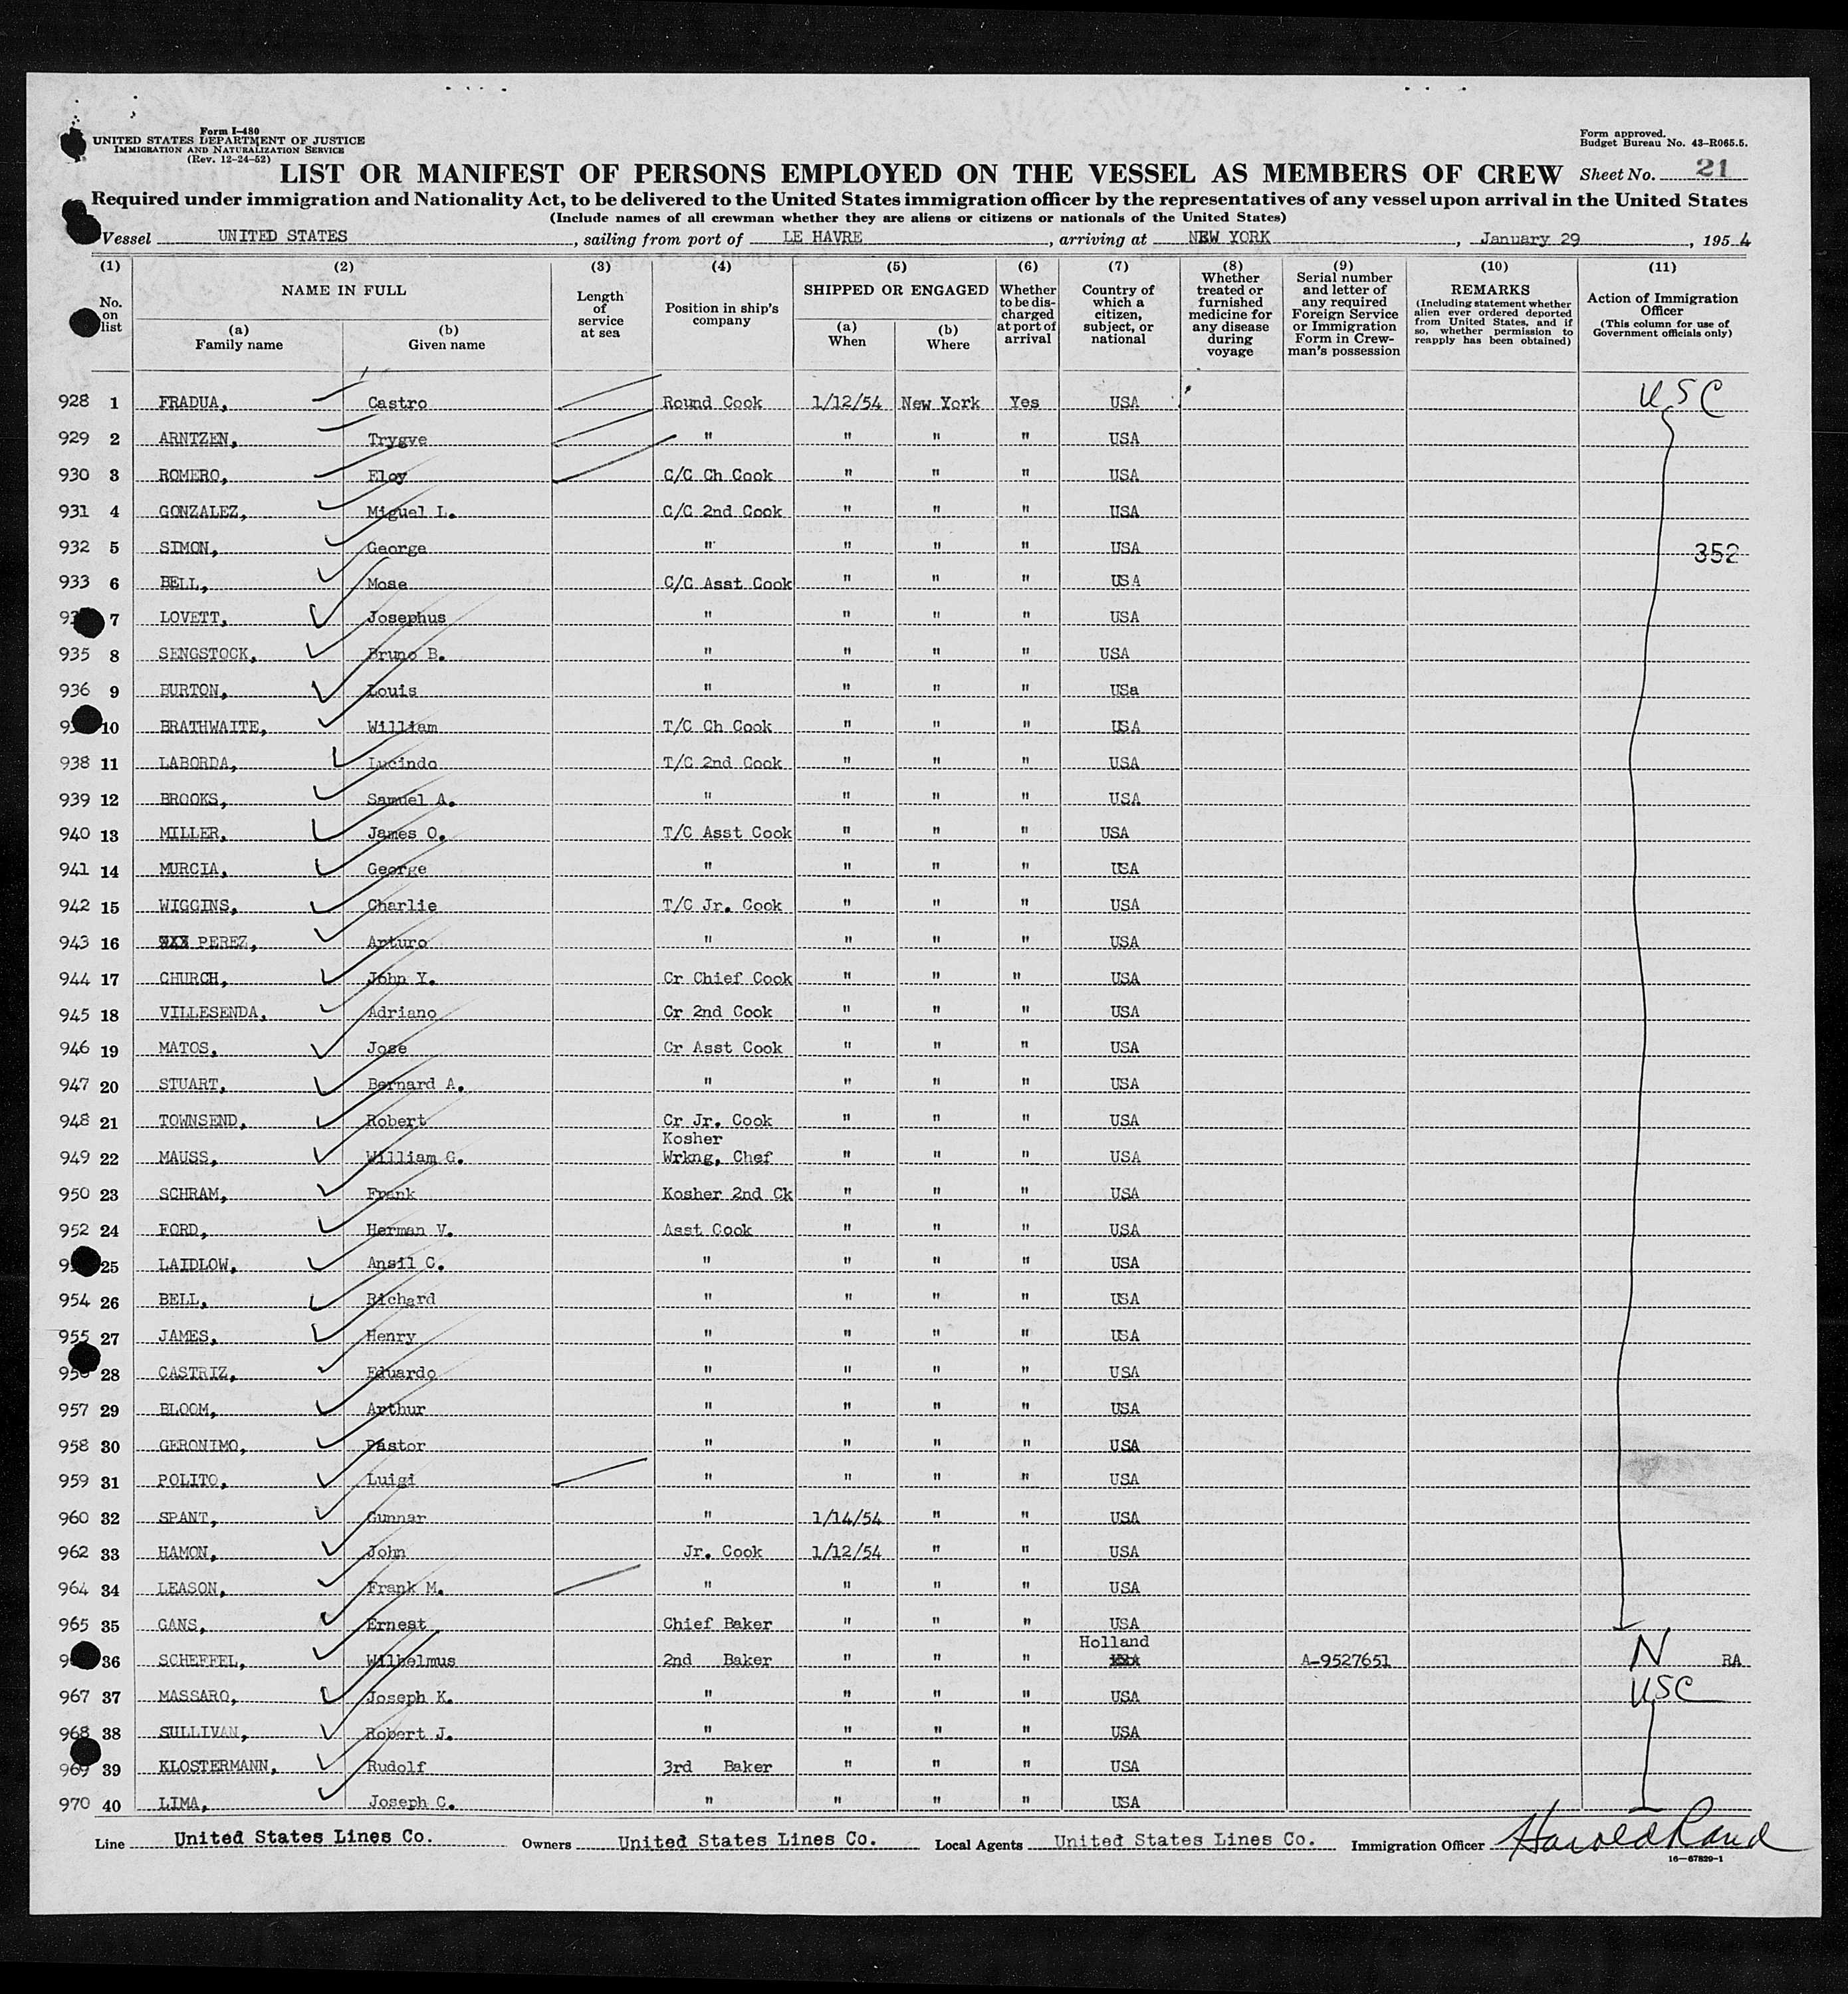 Form I-480
UNITED STATES DEPARTMENT OF JUSTICE
IMMIGRATION AND NATURALIZATION SERVICE
(Rev. 12-24-52)
Form approved.
Budget Bureau No. 43-R065.5.
LIST OR MANIFEST OF PERSONS EMPLOYED ON THE VESSEL AS MEMBERS OF CREW Sheet No. 21
Required under immigration and Nationality Act, to be delivered to the United States immigration officer by the representatives of any vessel upon arrival in the United States
(Include names of all crewman whether they are aliens or citizens or nationals of the United States)
Vessel UNITED STATES, sailing from port of LE HAVRE, arriving at NEW YORK, January 29, 1954
(1) (2) (3) (4) (5) (6) (7) (8) (9) (10) (11)
No. on list
NAME IN FULL
(a) Family name
(b) Given name
Length of service at sea
Position in ship's company
SHIPPED OR ENGAGED
(a) When
(b) Where
Whether to be discharged at port of arrival
Country of which a citizen, subject, or national
Whether treated or furnished medicine for any disease during voyage
Serial number and letter of any required Foreign Service or Immigration Form in Crewman's possession
REMARKS
(Including statement whether alien ever ordered deported from United States, and if so, whether permission to reapply has been obtained)
Action of Immigration Officer
(This column for use of Government officials only)
928 1 FRADUA, Castro Round Cook 1/12/54 New York Yes USA USC
929 2 ARNTZEN, Trygve " " " " USA
930 3 ROMERO, Eloy C/C Ch Cook " " " USA
931 4 GONZALEZ, Miguel L. C/C 2nd Cook " " " USA
932 5 SIMON, George " " " " USA 352
933 6 BELL, Mose C/C Asst Cook " " " USA
7 LOVETT, Josephus " " " " USA
935 8 SENGSTOCK, Bruno B. " " " " USA
936 9 BURTON, Louis " " " " USa
10 BRATHWAITE, William T/C Ch Cook " " " USA
938 11 LABORDA, Lucindo T/C 2nd Cook " " " USA
939 12 BROOKS, Samuel A. " " " " USA
940 13 MILLER, James O. T/C Asst Cook " " " USA
941 14 MURCIA, George " " " " USA
942 15 WIGGINS, Charlie T/C Jr. Cook " " " USA
943 16 PEREZ, Arturo " " " " USA
944 17 CHURCH, John Y. Cr Chief Cook " " " USA
945 18 VILLESENDA, Adriano Cr 2nd Cook " " " USA
946 19 MATOS, Jose Cr Asst Cook " " " USA
947 20 STUART, Bernard A. " " " " USA
948 21 TOWNSEND, Robert Cr Jr. Cook " " " USA
949 22 MAUSS, William G. Kosher Wrkng, Chef " " " USA
950 23 SCHRAM, Frank Kosher 2nd Ck " " " USA
952 24 FORD, Herman V. Asst Cook " " " USA
25 LAIDLOW, Ansil C. " " " " USA
954 26 BELL, Richard " " " " USA
955 27 JAMES, Henry " " " " USA
956 28 CASTRIZ, Eduardo " " " " USA
957 29 BLOOM, Arthur " " " " USA
958 30 GERONIMO, Pastor " " " " USA
959 31 POLITO, Luigi " " " " USA
960 32 SPANT, Gunnar " 1/14/54 " " USA
962 33 HAMON, John Jr. Cook 1/12/54 " " USA
964 34 LEASON, Frank M. " " " " USA
965 35 GANS, Ernest Chief Baker " " " USA
36 SCHEFFEL, Wilhelmus 2nd Baker " " " Holland A-9527651 N RA
967 37 MASSARO, Joseph K. " " " " USA USC
968 38 SULLIVAN, Robert J. " " " " USA
969 39 KLOSTERMANN, Rudolf 3rd Baker " " " USA
970 40 LIMA, Joseph C. " " " " USA
Line United States Lines Co. Owners United States Lines Co. Local Agents United States Lines Co. Immigration Officer Harold Rand
16-67829-1